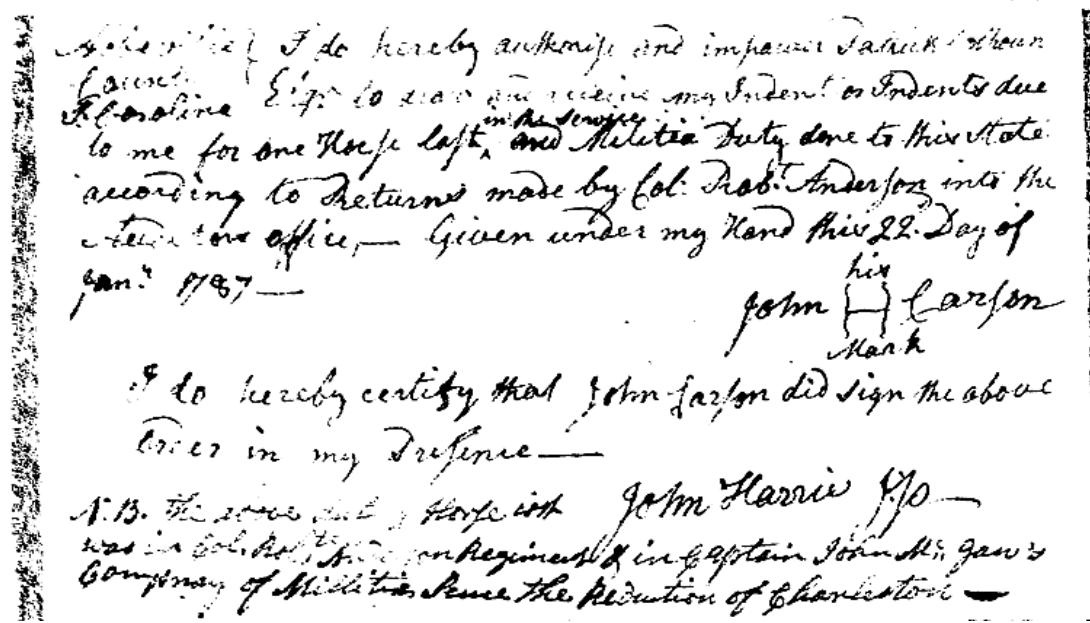 Abbeville } I do hereby authorise and impower Patrick Calhoun
County } Esqr. to draw and receive my Indent or Indents due
S. Carolina
to me for one Horse lost in the service and Militia Duty done to this State
according to Returns made by Col. Robt. Anderson into the
Auditors office,— Given under my Hand this 22. Day of
Jany. 1787 —
his
John H Carson
Mark
I do hereby certify that John Carson did sign the above
Order in my Presence —
John Harris J.P. —
N.B. The above duty & Horse lost
was in Col. Robt. Anderson Regiment & in Captain John Mc. Gaw's
Company of Millitia Sence the Reduction of Charleston —